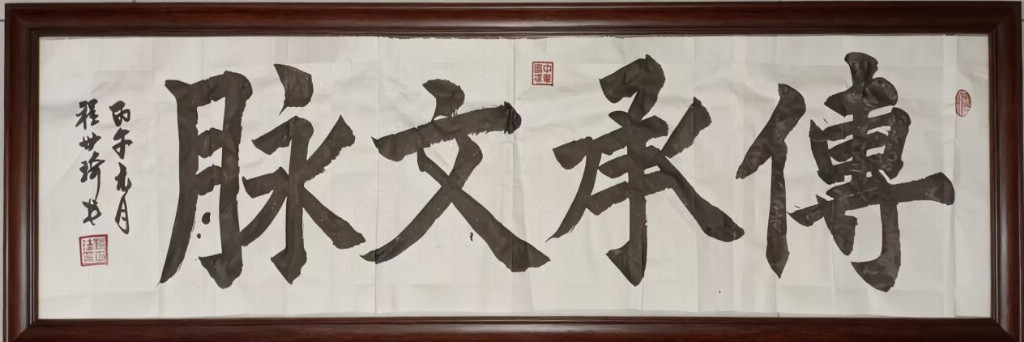 傳承文脉
丙午元月
程世琦书